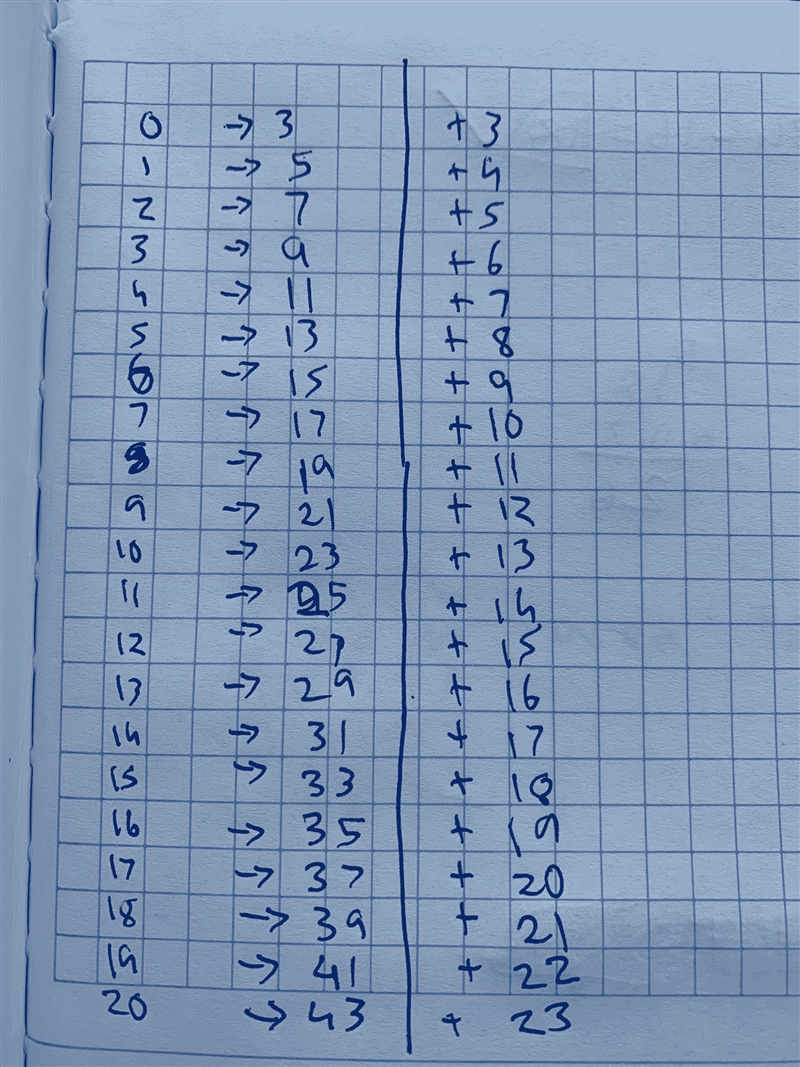 0 → 3 + 3
1 → 5 + 4
2 → 7 + 5
3 → 9 + 6
4 → 11 + 7
5 → 13 + 8
6 → 15 + 9
7 → 17 + 10
8 → 19 + 11
9 → 21 + 12
10 → 23 + 13
11 → 25 + 14
12 → 27 + 15
13 → 29 + 16
14 → 31 + 17
15 → 33 + 18
16 → 35 + 19
17 → 37 + 20
18 → 39 + 21
19 → 41 + 22
20 → 43 + 23